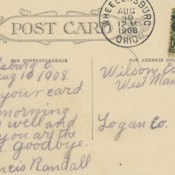 POST CARD
WHEELERSBURG
AUG
10
1908
OHIO
FOR CORRESPONDENCE
sburg O.
Aug 10, 1908.
your card
morning
well and
you are the
goodbye.
ncis Randall
Wilson
West Man
Logan Co.